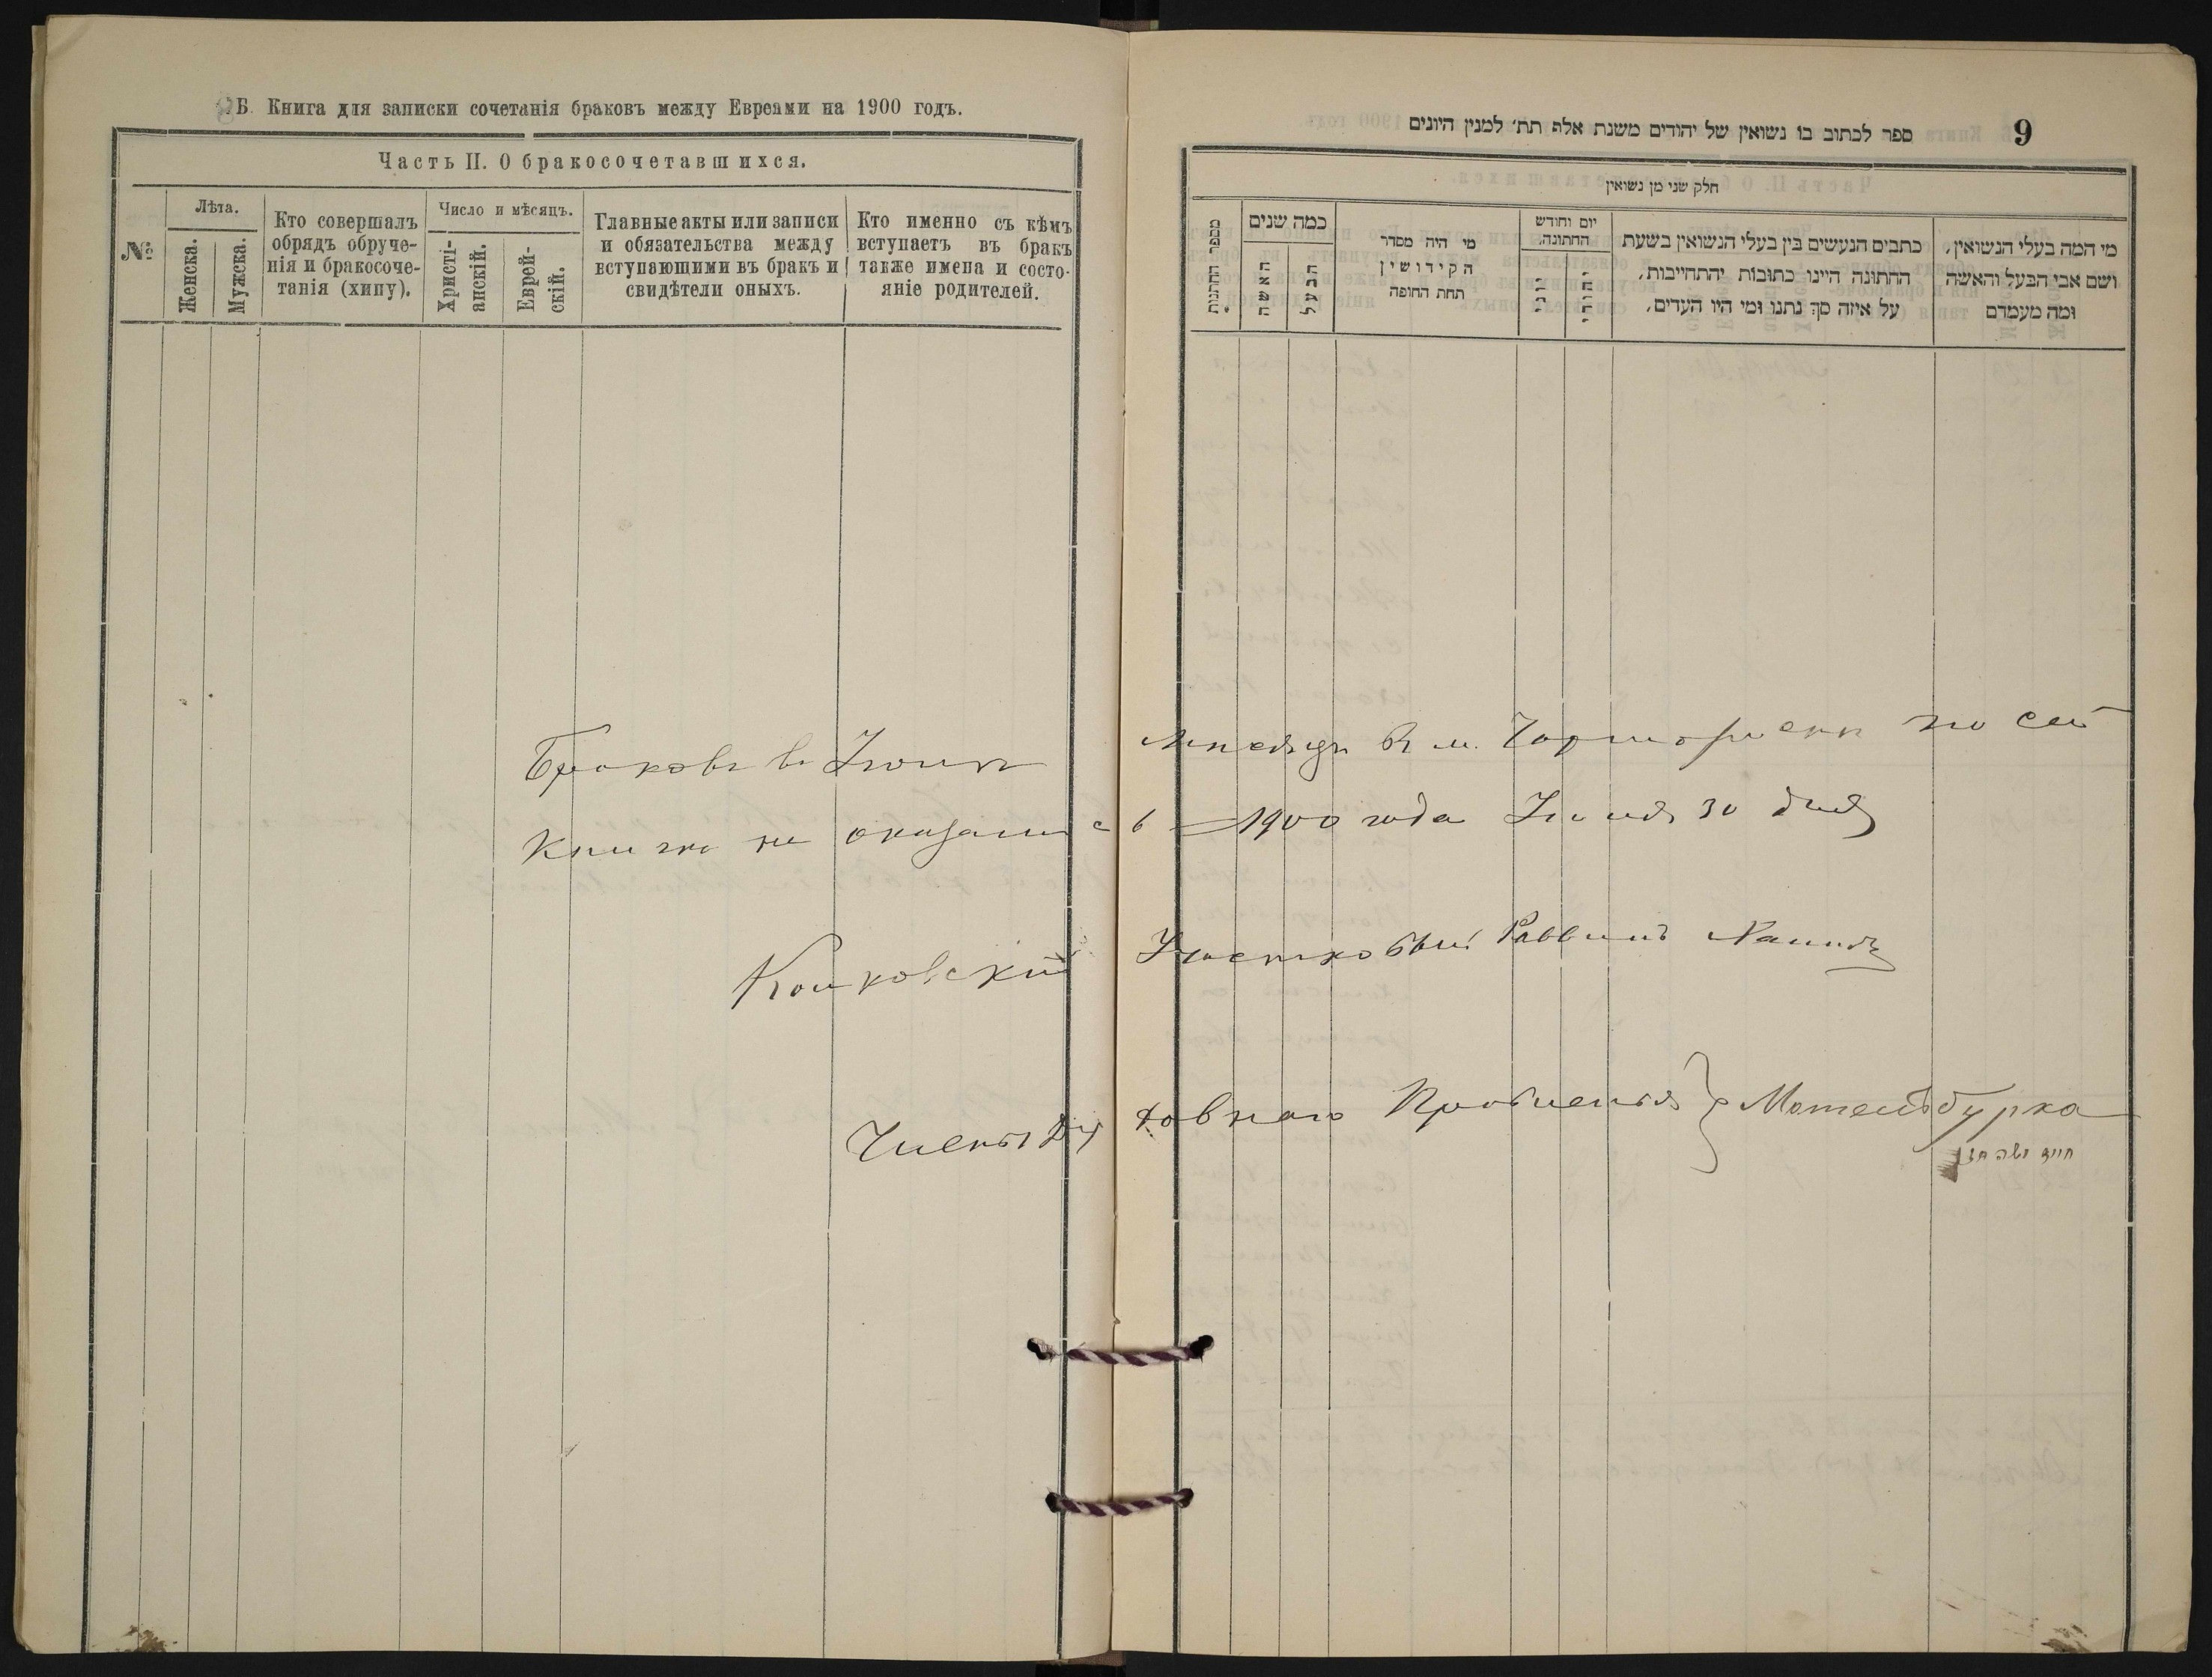 Б. Книга для записки сочетанія браковъ между Евреями на 1900 годъ.
Часть II. О бракосочетавшихся.
№
Лѣта.
Женска.
Мужска.
Кто совершалъ
обрядъ обруче-
нія и бракосоче-
танія (хипу).
Число и мѣсяцъ.
Христі-
анскій.
Еврей-
скій.
Главные акты или записи
и обязательства между
вступающими въ бракъ и
свидѣтели оныхъ.
Кто именно съ кѣмъ
вступаетъ въ бракъ
также имена и состо-
яніе родителей.
ספר לכתוב בו נשואין של יהודים משנת אלף תת׳ למנין היונים
9
חלק שני מן נשואין
מספר החתנות
כמה שנים
האשה
הבעל
מי היה מסדר
הקידושין
תחת החופה
יום וחודש
החתונה.
יוני
יהודי
כתבים הנעשים בין בעלי הנשואין בשעת
החתונה היינו כתובות יהתחייבות,
על איזה סך נתנו ומי היו העדים,
מי המה בעלי הנשואין,
ושם אבי הבעל והאשה
ומה מעמדם
Браковъ въ Іюнѣ мѣсяцѣ въ м. Чарторыскѣ по сей
книгѣ не оказалось 1900 года Іюня 30 дня
Колковскій Участковый Раввинъ
Члены Духовнаго Правленія } Мотель Бурка